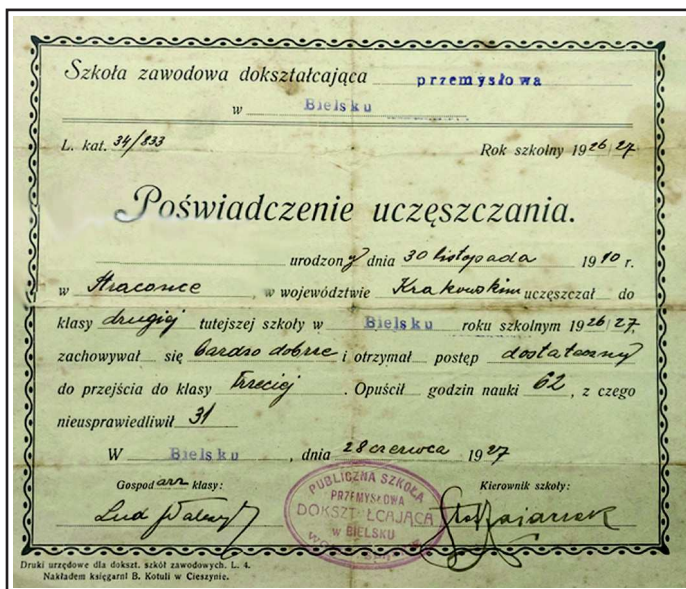 Szkoła zawodowa dokształcająca przemysłowa
w Bielsku
L. kat. 34/833 Rok szkolny 1926/27
Poświadczenie uczęszczania.
urodzony dnia 30 listopada 1910 r.
w Straconce, w województwie Krakowskim uczęszczał do
klasy drugiej tutejszej szkoły w Bielsku roku szkolnym 1926/27,
zachowywał się bardzo dobrze i otrzymał postęp dostateczny
do przejścia do klasy trzeciej. Opuścił godzin nauki 62, z czego
nieusprawiedliwił 31
W Bielsku, dnia 28 czerwca 1927
Gospodarz klasy: Kierownik szkoły:
PUBLICZNA SZKOŁA
PRZEMYSŁOWA
DOKSZTAŁCAJĄCA
w BIELSKU
Druki urzędowe dla dokszt. szkół zawodowych. L. 4.
Nakładem księgarni B. Kotuli w Cieszynie.